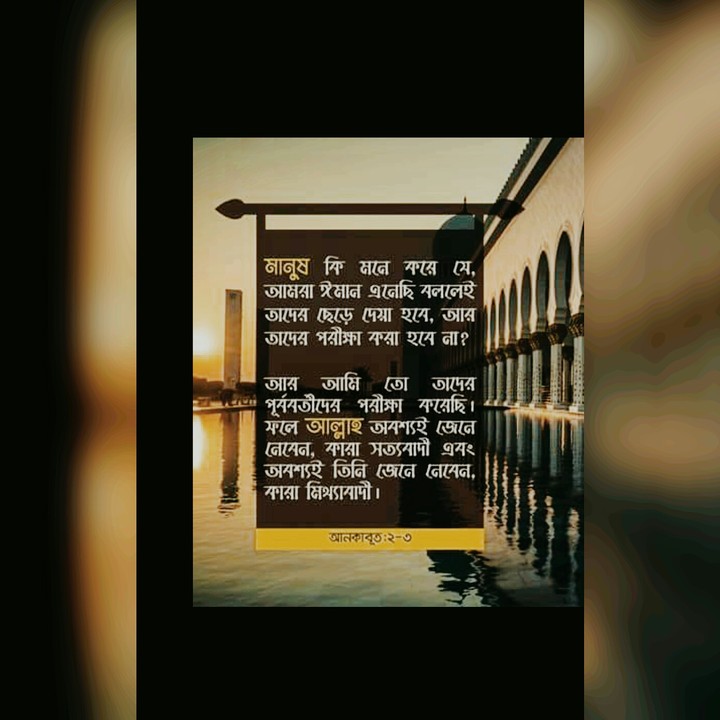 মানুষ কি মনে করে যে,
আমরা ঈমান এনেছি বললেই
তাদের ছেড়ে দেয়া হবে, আর
তাদের পরীক্ষা করা হবে না?
আর আমি তো তাদের
পূর্ববর্তীদের পরীক্ষা করেছি।
ফলে আল্লাহ অবশ্যই জেনে
নেবেন, কারা সত্যবাদী এবং
অবশ্যই তিনি জেনে নেবেন,
কারা মিথ্যাবাদী।
আনকাবূত:২-৩